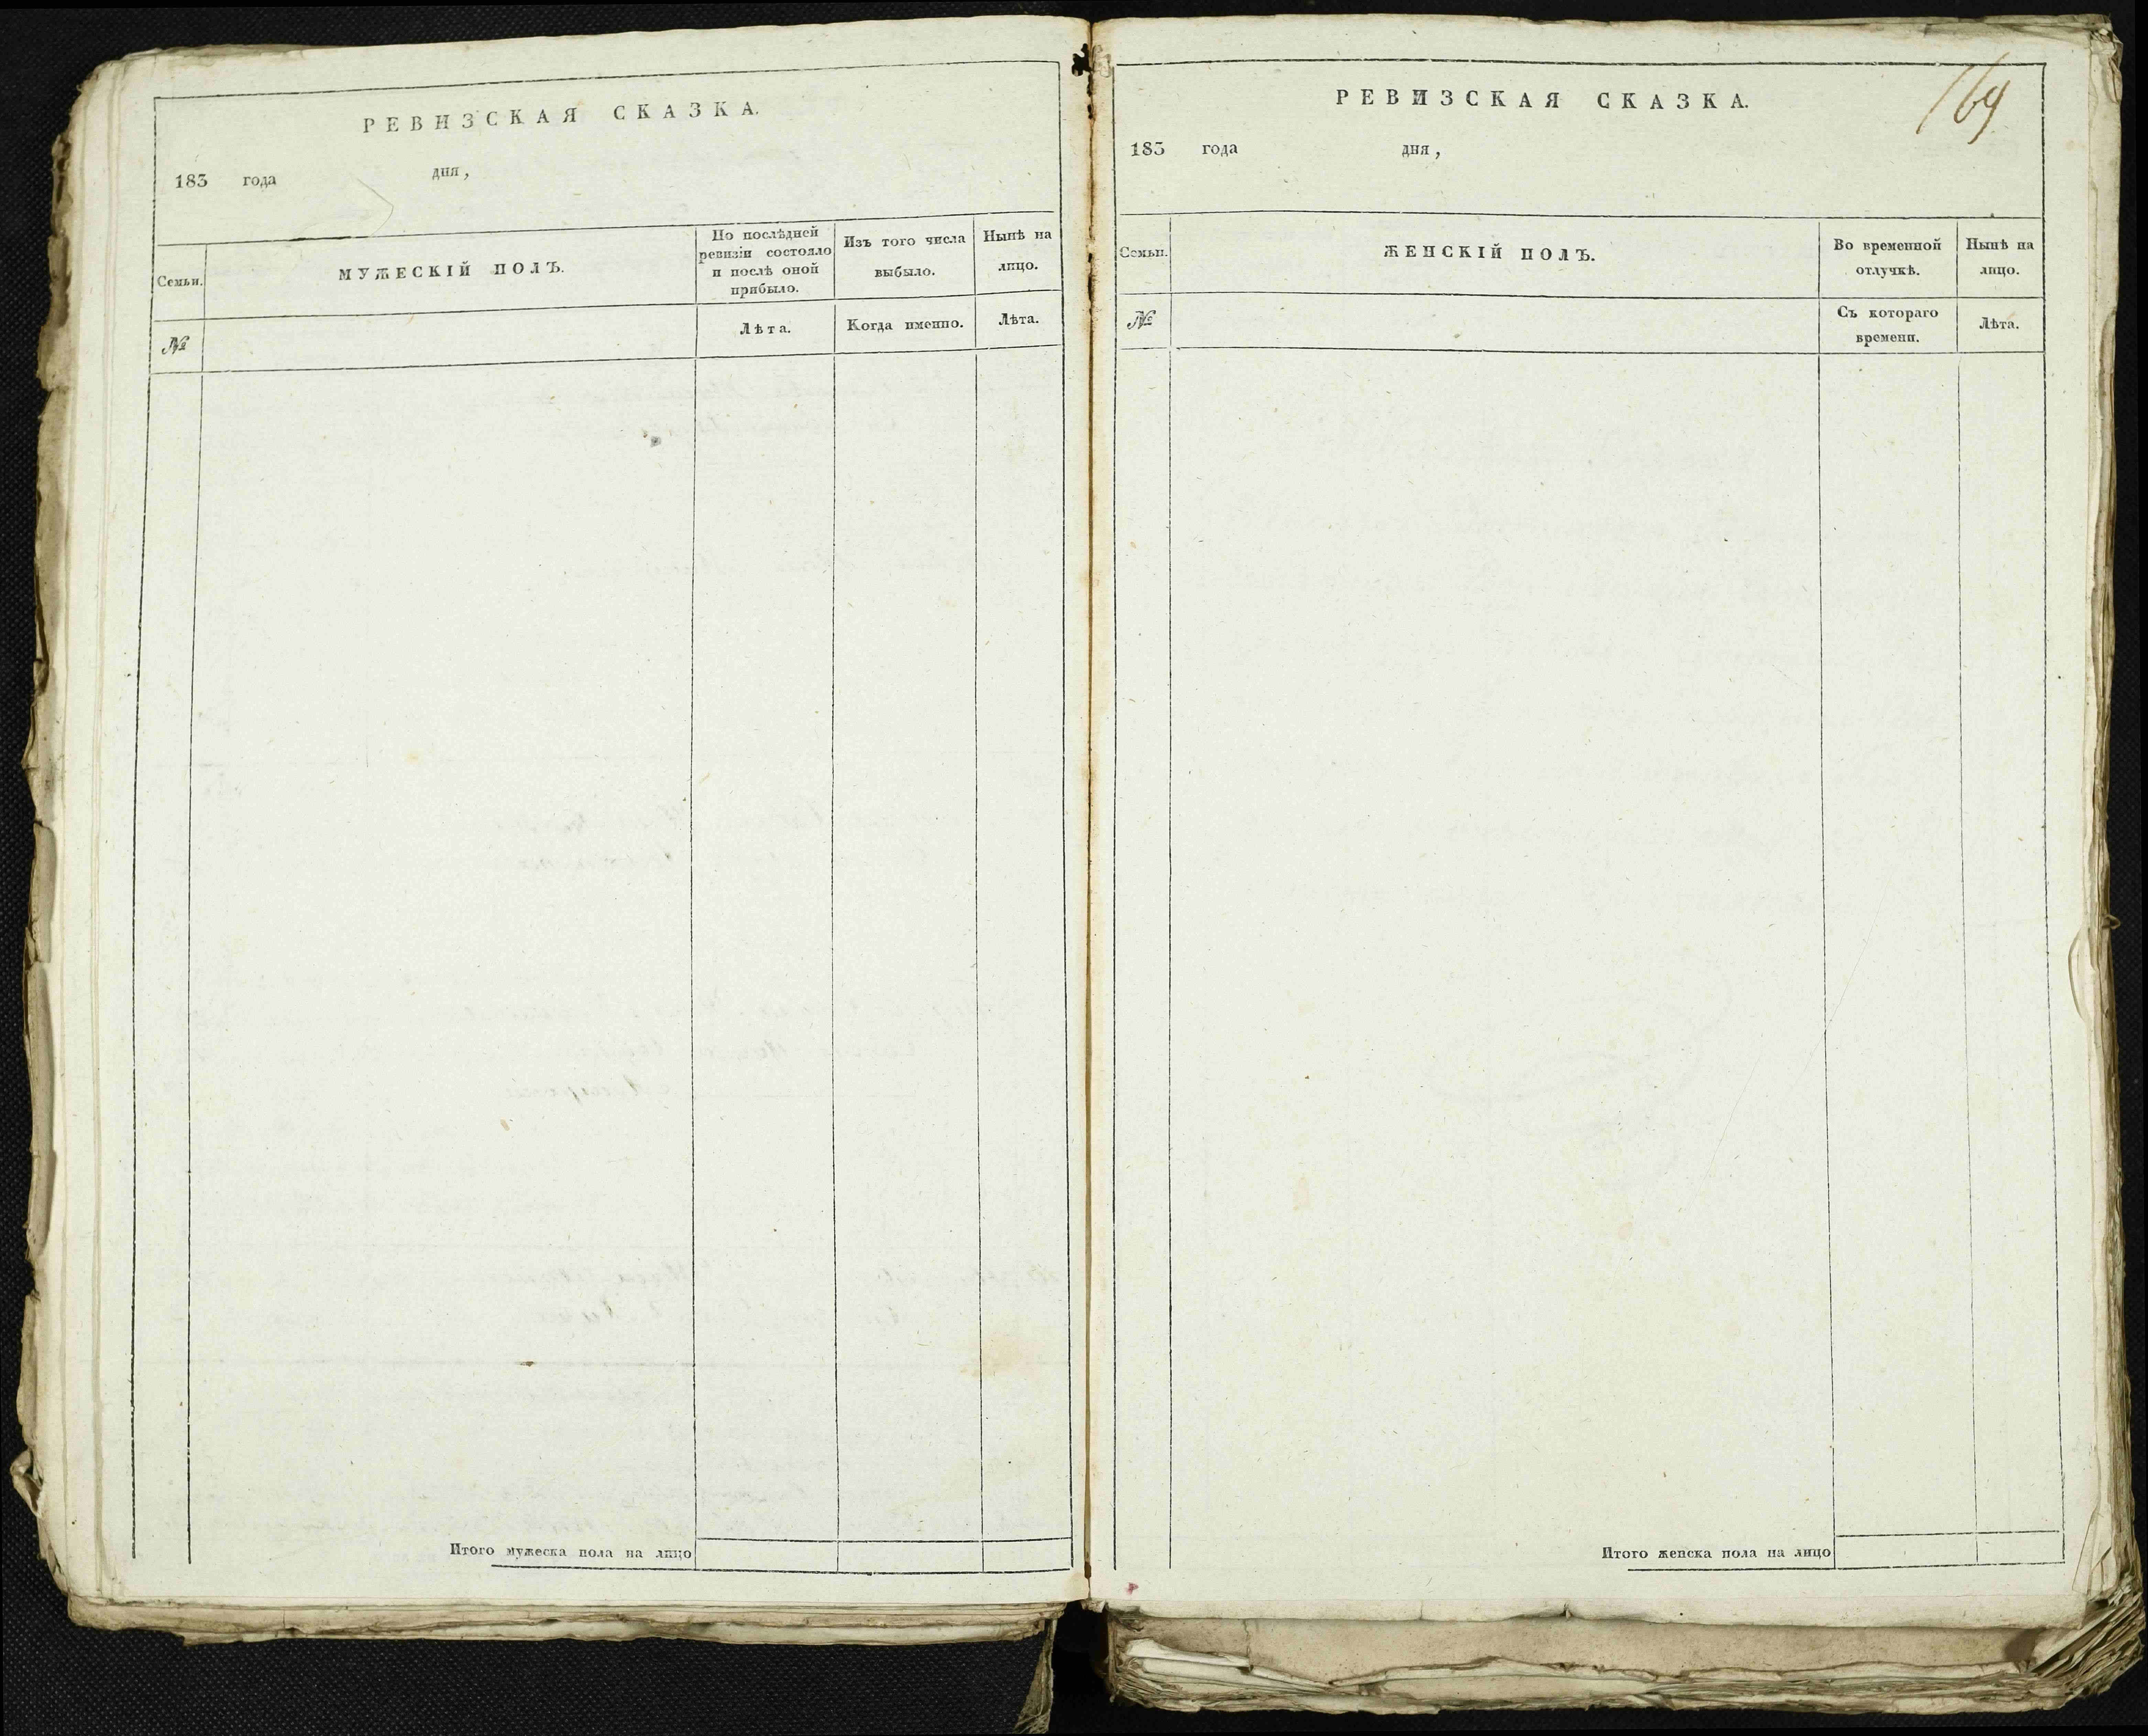 РЕВИЗСКАЯ СКАЗКА.
183 года дня,
Семьи.
МУЖЕСКІЙ ПОЛЪ.
По послѣдней
ревизіи состояло
и послѣ оной
прибыло.
Изъ того числа
выбыло.
Нынѣ на
лицо.
№
Лѣта.
Когда именно.
Лѣта.
Итого мужеска пола на лицо
169
РЕВИЗСКАЯ СКАЗКА.
183 года дня,
Семьи.
ЖЕНСКІЙ ПОЛЪ.
Во временной
отлучкѣ.
Нынѣ на
лицо.
№
Съ котораго
времени.
Лѣта.
Итого женска пола на лицо